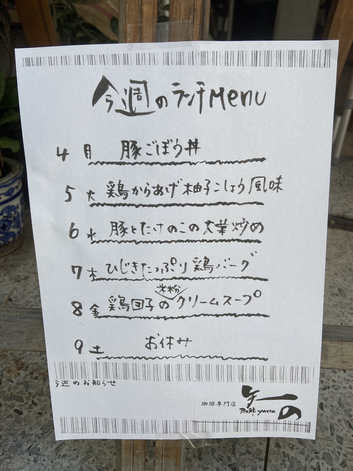 今週のランチMenu
4 月 豚ごぼう丼
5 火 鶏からあげ柚子こしょう風味
6 水 豚とたけのこの大葉炒め
7 木 ひじきたっぷり鶏バーグ
米粉
8 金 鶏団子のクリームスープ
9 土 お休み
今週のお知らせ
珈琲専門店